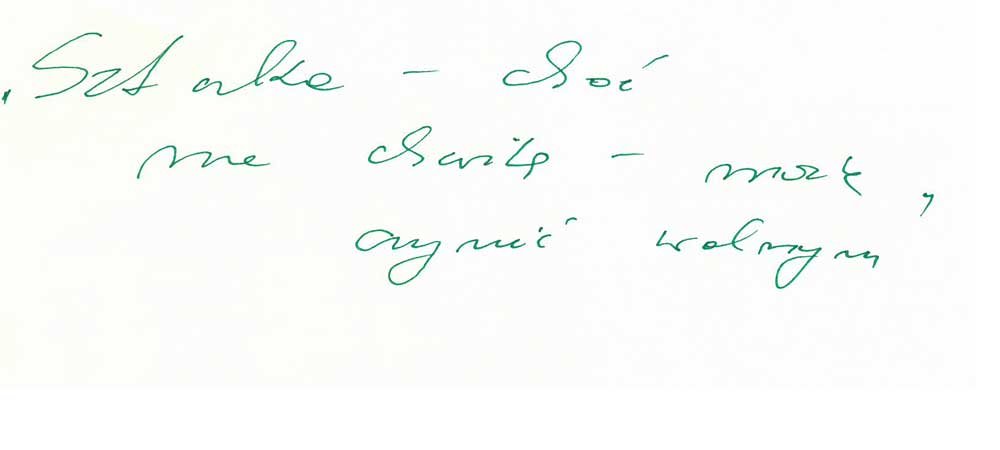 „Sztuka – choć
na chwilę – może
czynić wolnym”